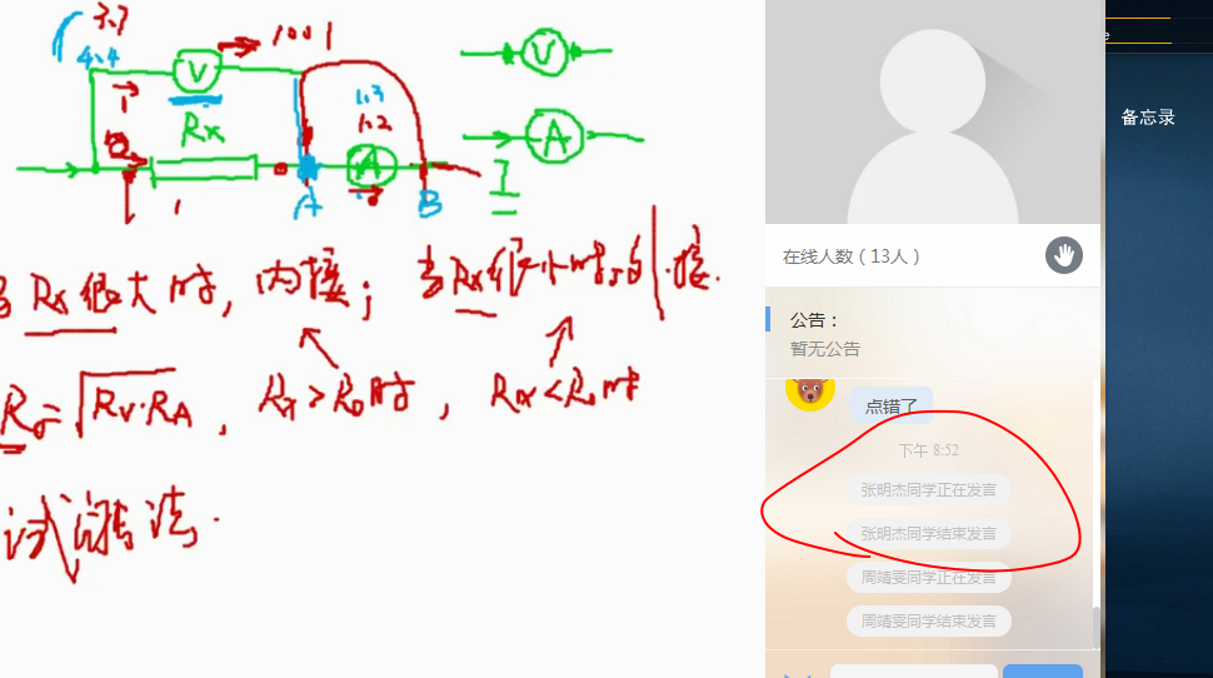 3.7
4.4
V
1001
Rx
1.3
1.2
A
I
I
1
A
B
V
A
当Rx很大时，内接；当Rx很小时，外接．
R₀=√Rv·RA，Rx>R₀时，Rx<R₀时
试触法．
e
备忘录
在线人数（13人）
公告：
暂无公告
点错了
下午 8:52
张明杰同学正在发言
张明杰同学结束发言
周靖雯同学正在发言
周靖雯同学结束发言